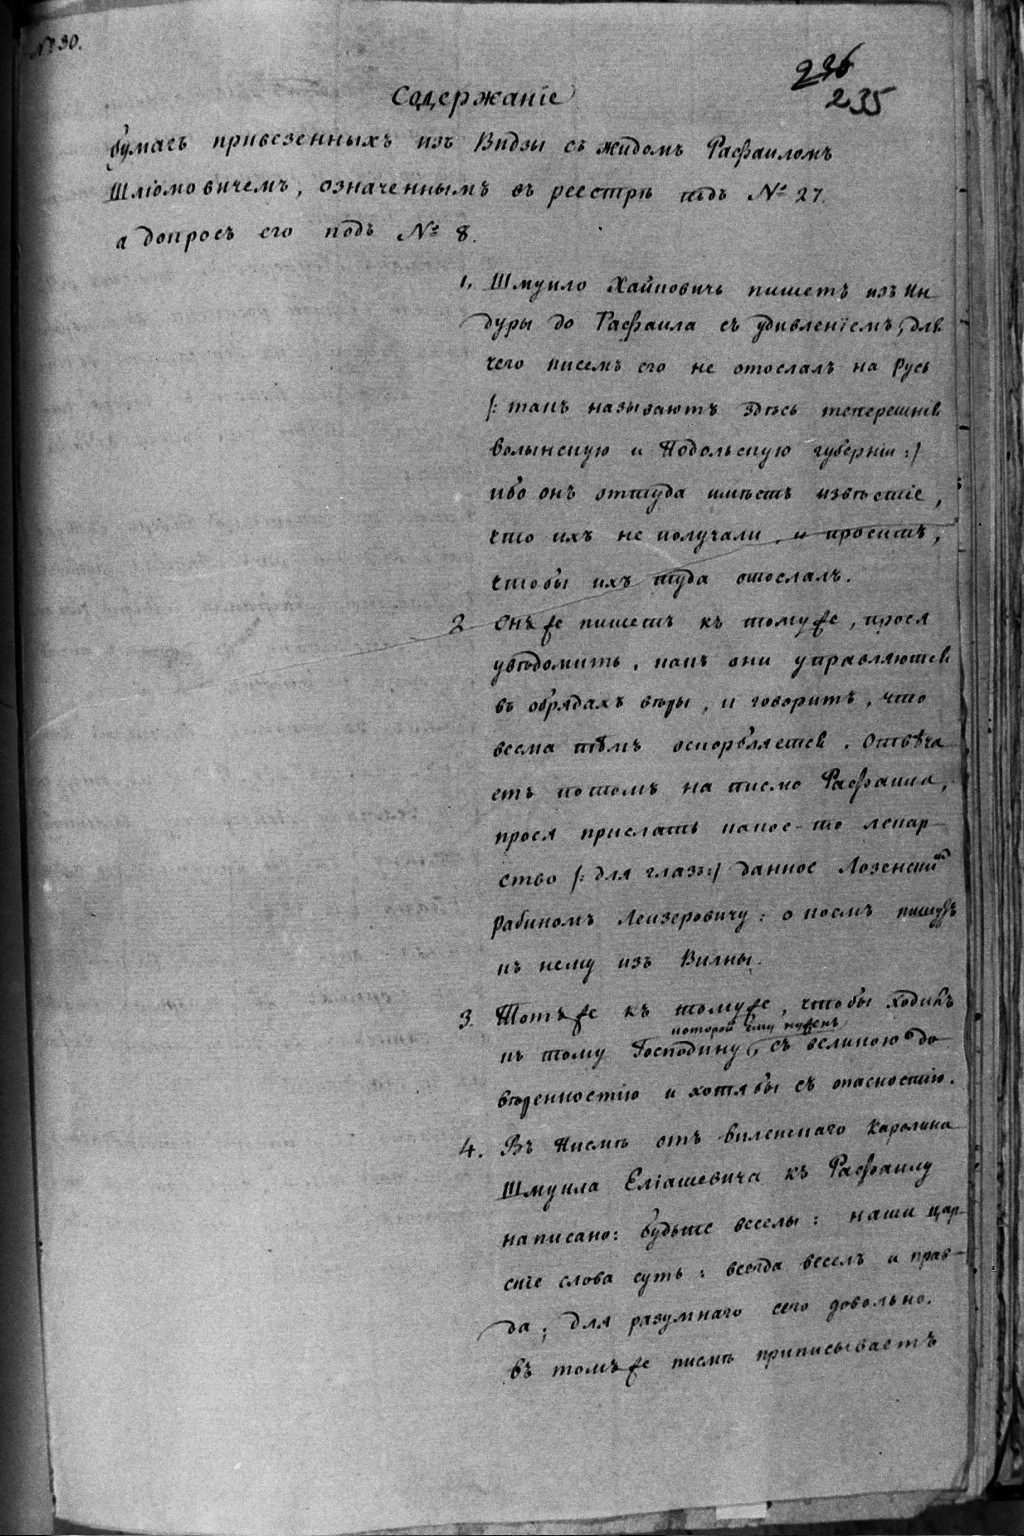 № 30.
236
235
Содержаніе
бумагъ привезенныхъ изъ Видзы съ жидомъ Рафаиломъ
Шліомовичемъ, означеннымъ въ реестрѣ подъ № 27.
а допросъ его подъ № 8.
1, Шмуило Хаймовичь пишетъ изъ Ин-
дуры до Рафаила съ удивленіемъ, для
чего писемъ его не отослалъ на Русь
/: такъ называютъ здѣсь теперешнія
Волынскую и Подольскую губерніи :/
ибо онъ оттуда имѣетъ извѣстіе,
что ихъ не получали, и проситъ,
чтобы ихъ туда отослалъ.
2 Онъ же пишетъ къ томуже, прося
увѣдомить, какъ они управляются
въ обрядахъ вѣры, и говоритъ, что
весма тѣмъ оскорбляется. Отвѣча-
етъ потомъ на писмо Рафаила,
прося прислать какое-то лекар-
ство /: для глазъ :/ данное Лозенскимъ
рабиномъ Лейзеровичу: о коемъ пишутъ
къ нему изъ Вилны.
3. Тотъ же къ томуже, чтобы ходилъ
которой ему нуженъ
къ тому Господину, съ великою до-
вѣренностію и хотя бы съ опасностію.
4. Въ писмѣ отъ виленскаго каролина
Шмуила Еліашевича къ Рафаилу
написано: будьте веселы: наши цар-
скіе слова суть: всегда веселъ и прав-
да; для разумнаго сего довольно.
въ томъ же писмѣ приписываетъ